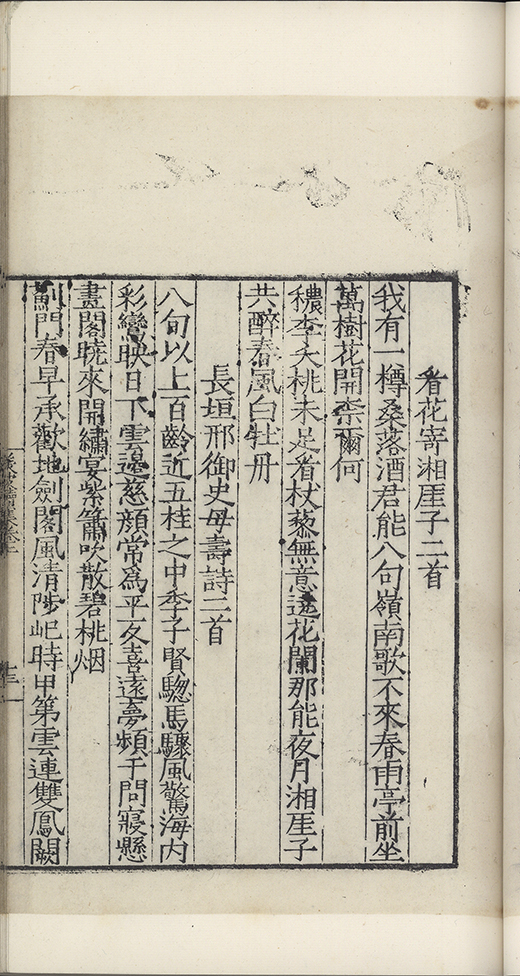 看花寄湘厓子二首
我有一樽桑落酒君能八句嶺南歌不來春雨亭前坐
萬樹花開柰爾何
穠李夭桃未足看杖藜無意遶花闌那能夜月湘厓子
共醉春風白牡丹
長垣邢御史母壽詩二首
八旬以上百齡近五桂之中季子賢驄馬驟風驚海内
彩鸞映日下雲邊慈顏常為平反喜遠夢頻于問寢懸
畫閣曉來開繡宴紫簫吹散碧桃烟
薊門春早承歡地劍閣風清陟屺時甲第雲連雙鳳闕